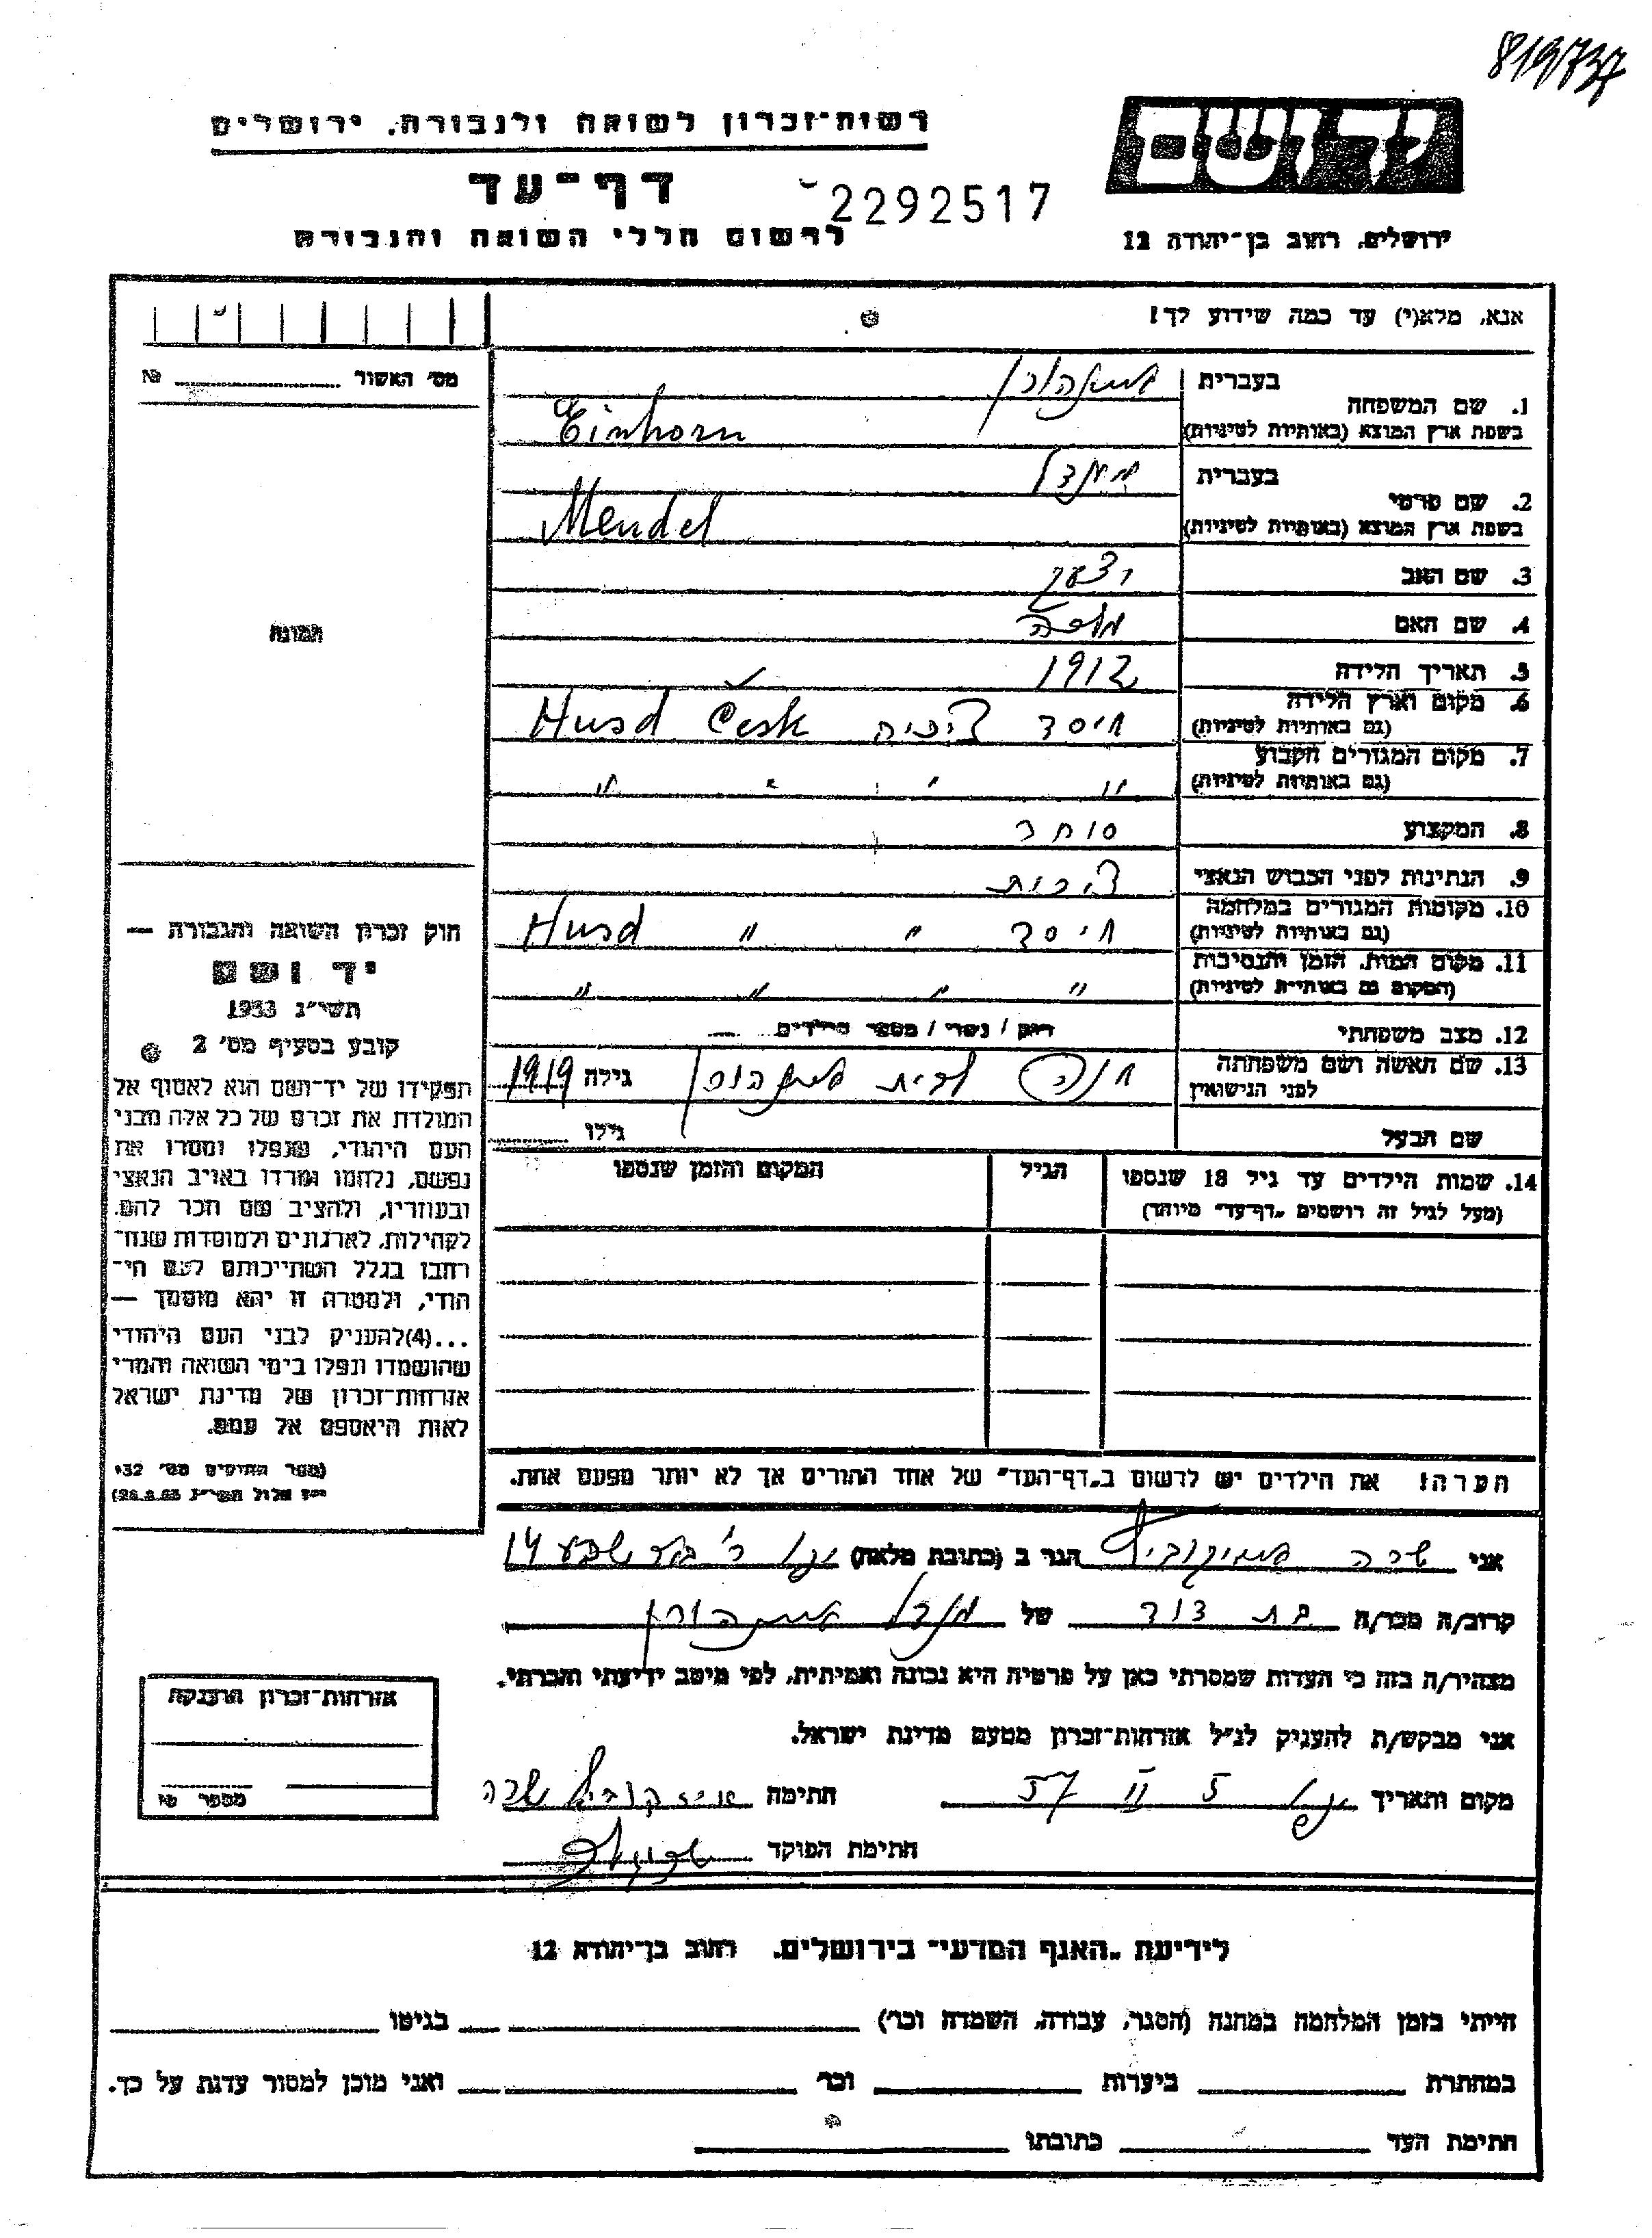 819737
רשות-זכרון לשואה ולגבורה, ירושלים
יד ושם
דף-עד
2292517
לרשום חללי השואה והגבורה
ירושלים, רחוב בן-יהודה 12
אנא, מלא(י) עד כמה שידוע לך!
מס' האשור № 
1. שם המשפחה
בעברית איינהורן
בשפת ארץ המוצא (באותיות לטיניות) Einhorn
2. שם פרטי
בעברית מנדל
בשפת ארץ המוצא (באותיות לטיניות) Mendel
3. שם האב יצחק
4. שם האם
5. תאריך הלידה 1912
6. מקום וארץ הלידה
(גם באותיות לטיניות) Husd Česk
7. מקום המגורים הקבוע
(גם באותיות לטיניות) " " " "
8. המקצוע סוחר
9. הנתינות לפני הכבוש הנאצי צ'כית
10. מקומות המגורים במלחמה
(גם באותיות לטיניות) " " Husd
11. מקום המות, הזמן והנסיבות
(המקום גם באותיות לטיניות) " " " "
12. מצב משפחתי רווק / נשוי / מספר הילדים —
13. שם האשה ושם משפחתה
לפני הנישואין חנה לבית איינהורן גילה 1919
שם הבעל גילו
14. שמות הילדים עד גיל 18 שנספו
(מעל לגיל זה רושמים "דף-עד" מיוחד)
הגיל
המקום והזמן שנספו
תמונה
חוק זכרון השואה והגבורה —
יד ושם
תשי"ג 1953
קובע בסעיף מס' 2
תפקידו של יד-ושם הוא לאסוף אל
המולדת את זכרם של כל אלה מבני
העם היהודי, שנפלו ומסרו את
נפשם, נלחמו ומרדו באויב הנאצי
ובעוזריו, ולהציב שם וזכר להם,
לקהילות, לארגונים ולמוסדות שנח־
רחבו בגלל השתייכותם לעם הי־
הודי, ולמטרה זו יהא מוסמך —
...(4)להעניק לבני העם היהודי
שהושמדו ונפלו בימי השואה והמרי
אזרחות-זכרון של מדינת ישראל
לאות היאספם אל עמם.
(ספר החוקים מס' 132
י"ז אלול תשי"ג 28.8.53)
הערה! את הילדים יש לרשום ב"דף-העד" של אחד ההורים אך לא יותר מפעם אחת.
אני שרה הגר ב (כתובת מלאה) 14
קרוב/ה מכר/ה בת דוד של מנדל איינהורן
מצהיר/ה בזה כי העדות שמסרתי כאן על פרטיה היא נכונה ואמיתית, לפי מיטב ידיעתי והכרתי.
אני מבקש/ת להעניק לנ"ל אזרחות-זכרון מטעם מדינת ישראל.
מקום ותאריך 5 II 57 חתימה
חתימת הפוקד
אזרחות-זכרון הוענקה
מספר №
לידיעת "האגף המדעי" בירושלים, רחוב בן-יהודה 12
הייתי בזמן המלחמה במחנה (הסגר, עבודה, השמדה וכו') בגיטו
במחתרת ביערות וכו' ואני מוכן למסור עדות על כך.
חתימת העד כתובתו